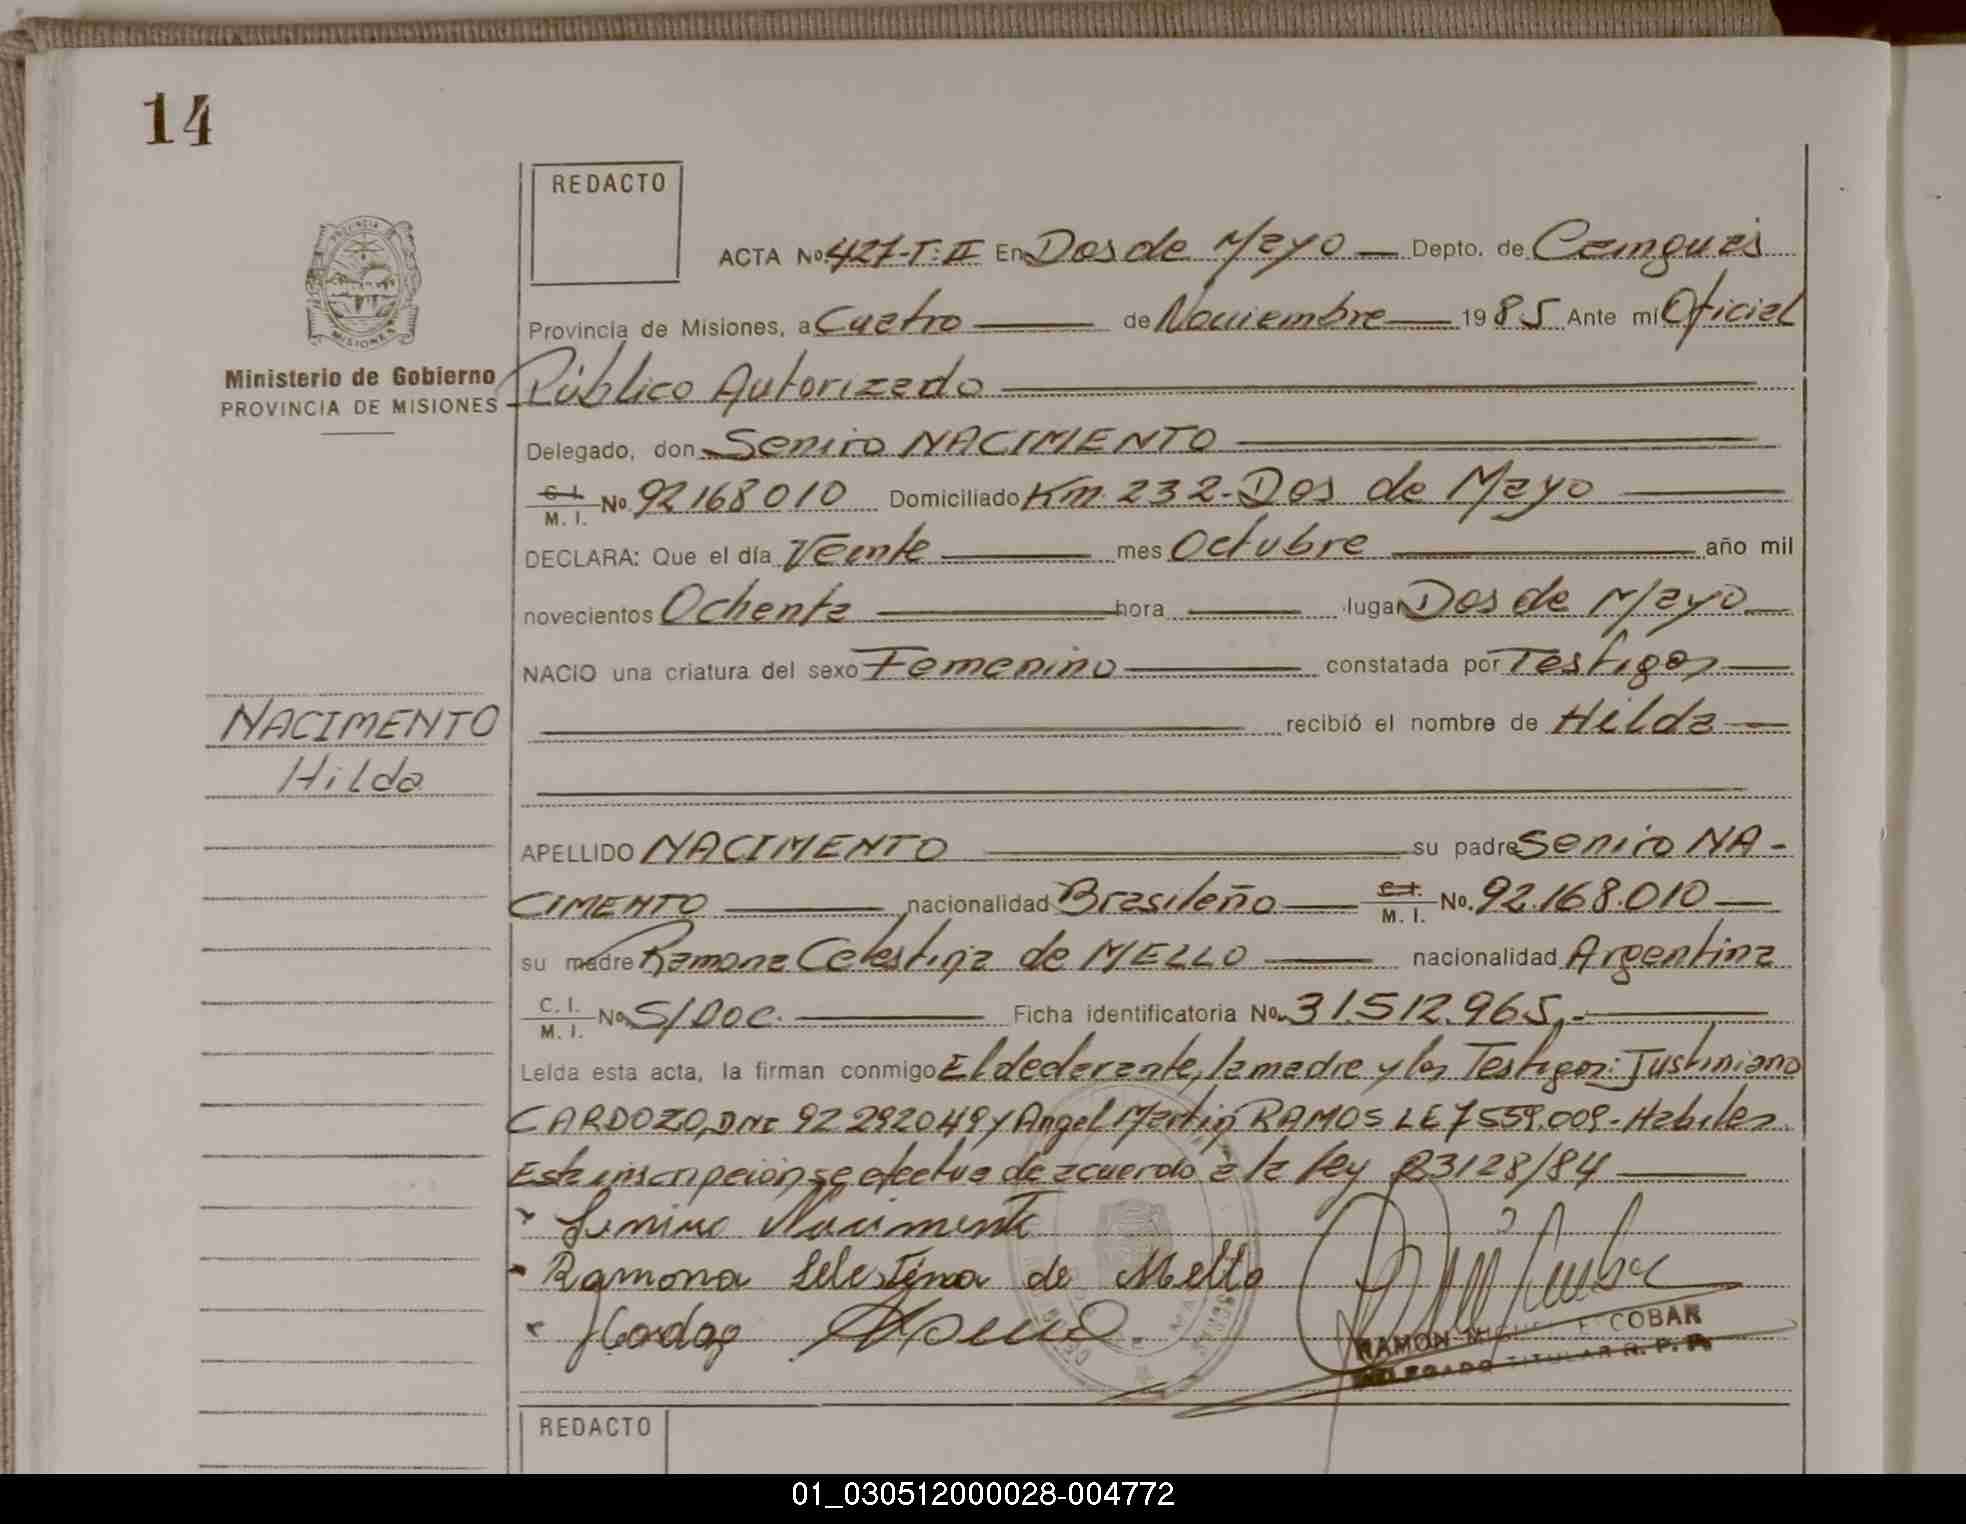 14
REDACTO
PROVINCIA DE
MISIONES
Ministerio de Gobierno
PROVINCIA DE MISIONES
ACTA No. 427-T:II En Dos de Mayo — Depto. de Cainguás
Provincia de Misiones, a Cuatro — de Noviembre — 1985 Ante mi Oficial
Público Autorizado
Delegado, don Seniro NACIMENTO
C. I. / M. I. No. 92168010 Domiciliado Km. 232-Dos de Mayo
DECLARA: Que el día Veinte — mes Octubre — año mil
novecientos Ochenta — hora — lugar Dos de Mayo —
NACIO una criatura del sexo Femenino — constatada por Testigos —
recibió el nombre de Hilda —
NACIMENTO
Hilda
APELLIDO NACIMENTO — su padre Seniro NA-
CIMENTO — nacionalidad Brasileño — C. I. / M. I. No. 92.168.010 —
su madre Ramona Celestina de MELLO — nacionalidad Argentina
C. I. / M. I. No. S/Doc. — Ficha identificatoria No. 31.512.965.-
Leída esta acta, la firman conmigo El declarante, la madre y los Testigos: Justiniano
CARDOZO, DNI 92 292049 y Angel Martin RAMOS LE 7559.009.- Habiles.
Esta inscripción se efectua de acuerdo a la ley 23128/84 —
Seniro Nacimento
Ramona Selestina de Mello
RAMON MIGUEL ESCOBAR
DELEGADO TITULAR R. P. P.
REDACTO
01_030512000028-004772